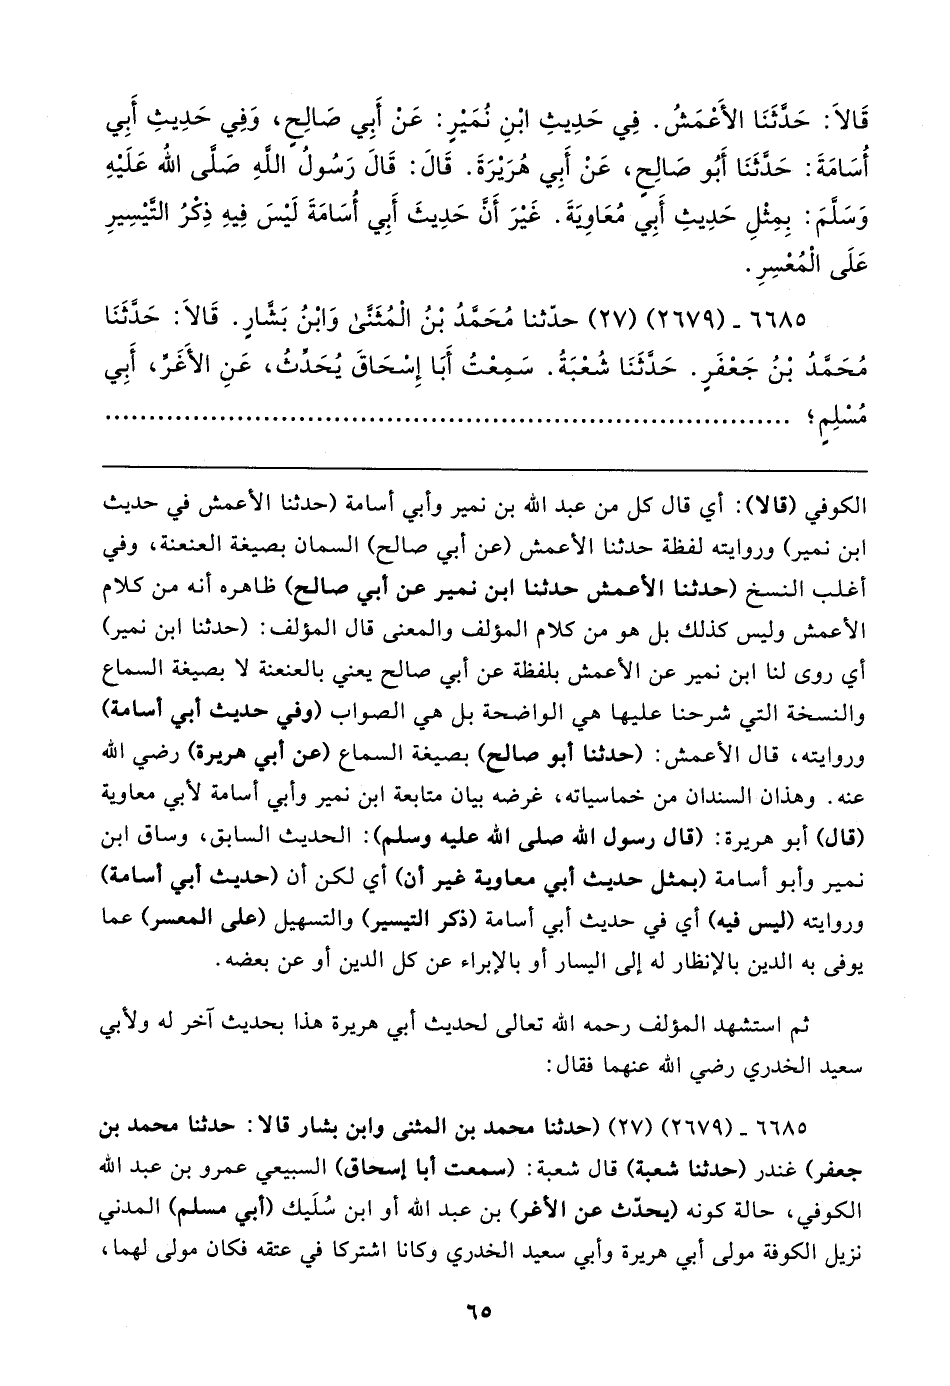 قَالاَ: حَدَّثَنَا الأَعْمَشُ. فِي حَدِيثِ ابْنِ نُمَيْرٍ: عَنْ أَبِي صَالِحٍ، وَفِي حَدِيثِ أَبِي
أُسَامَةَ: حَدَّثَنَا أَبُو صَالِحٍ، عَنْ أَبِي هُرَيْرَةَ. قَالَ: قَالَ رَسُولُ اللَّهِ صَلَّى اللهُ عَلَيْهِ
وَسَلَّمَ: بِمِثْلِ حَدِيثِ أَبِي مُعَاوِيَةَ. غَيْرَ أَنَّ حَدِيثَ أَبِي أُسَامَةَ لَيْسَ فِيهِ ذِكْرُ التَّيْسِيرِ
عَلَى الْمُعْسِرِ.
٦٦٨٥ ـ (٢٦٧٩) (٢٧) حدّثنا مُحَمَّدُ بْنُ الْمُثَنَّىٰ وَابْنُ بَشَّارٍ. قَالاَ: حَدَّثَنَا
مُحَمَّدُ بْنُ جَعْفَرٍ. حَدَّثَنَا شُعْبَةُ. سَمِعْتُ أَبَا إِسْحَاقَ يُحَدِّثُ، عَنِ الأَغَرِّ، أَبِي
مُسْلِمٍ؛ ......................................................................
الكوفي (قالا): أي قال كل من عبد الله بن نمير وأبي أسامة (حدثنا الأعمش في حديث
ابن نمير) وروايته لفظة حدثنا الأعمش (عن أبي صالح) السمان بصيغة العنعنة، وفي
أغلب النسخ (حدثنا الأعمش حدثنا ابن نمير عن أبي صالح) ظاهره أنه من كلام
الأعمش وليس كذلك بل هو من كلام المؤلف والمعنى قال المؤلف: (حدثنا ابن نمير)
أي روى لنا ابن نمير عن الأعمش بلفظة عن أبي صالح يعني بالعنعنة لا بصيغة السماع
والنسخة التي شرحنا عليها هي الواضحة بل هي الصواب (وفي حديث أبي أسامة)
وروايته، قال الأعمش: (حدثنا أبو صالح) بصيغة السماع (عن أبي هريرة) رضي الله
عنه. وهذان السندان من خماسياته، غرضه بيان متابعة ابن نمير وأبي أسامة لأبي معاوية
(قال) أبو هريرة: (قال رسول الله صلى الله عليه وسلم): الحديث السابق، وساق ابن
نمير وأبو أسامة (بمثل حديث أبي معاوية غير أن) أي لكن أن (حديث أبي أسامة)
وروايته (ليس فيه) أي في حديث أبي أسامة (ذكر التيسير) والتسهيل (على المعسر) عما
يوفى به الدين بالإنظار له إلى اليسار أو بالإبراء عن كل الدين أو عن بعضه.
ثم استشهد المؤلف رحمه الله تعالى لحديث أبي هريرة هذا بحديث آخر له ولأبي
سعيد الخدري رضي الله عنهما فقال:
٦٦٨٥ ـ (٢٦٧٩) (٢٧) (حدثنا محمد بن المثنى وابن بشار قالا: حدثنا محمد بن
جعفر) غندر (حدثنا شعبة) قال شعبة: (سمعت أبا إسحاق) السبيعي عمرو بن عبد الله
الكوفي، حالة كونه (يحدّث عن الأغر) بن عبد الله أو ابن سُلَيك (أبي مسلم) المدني
نزيل الكوفة مولى أبي هريرة وأبي سعيد الخدري وكانا اشتركا في عتقه فكان مولى لهما،
٦٥